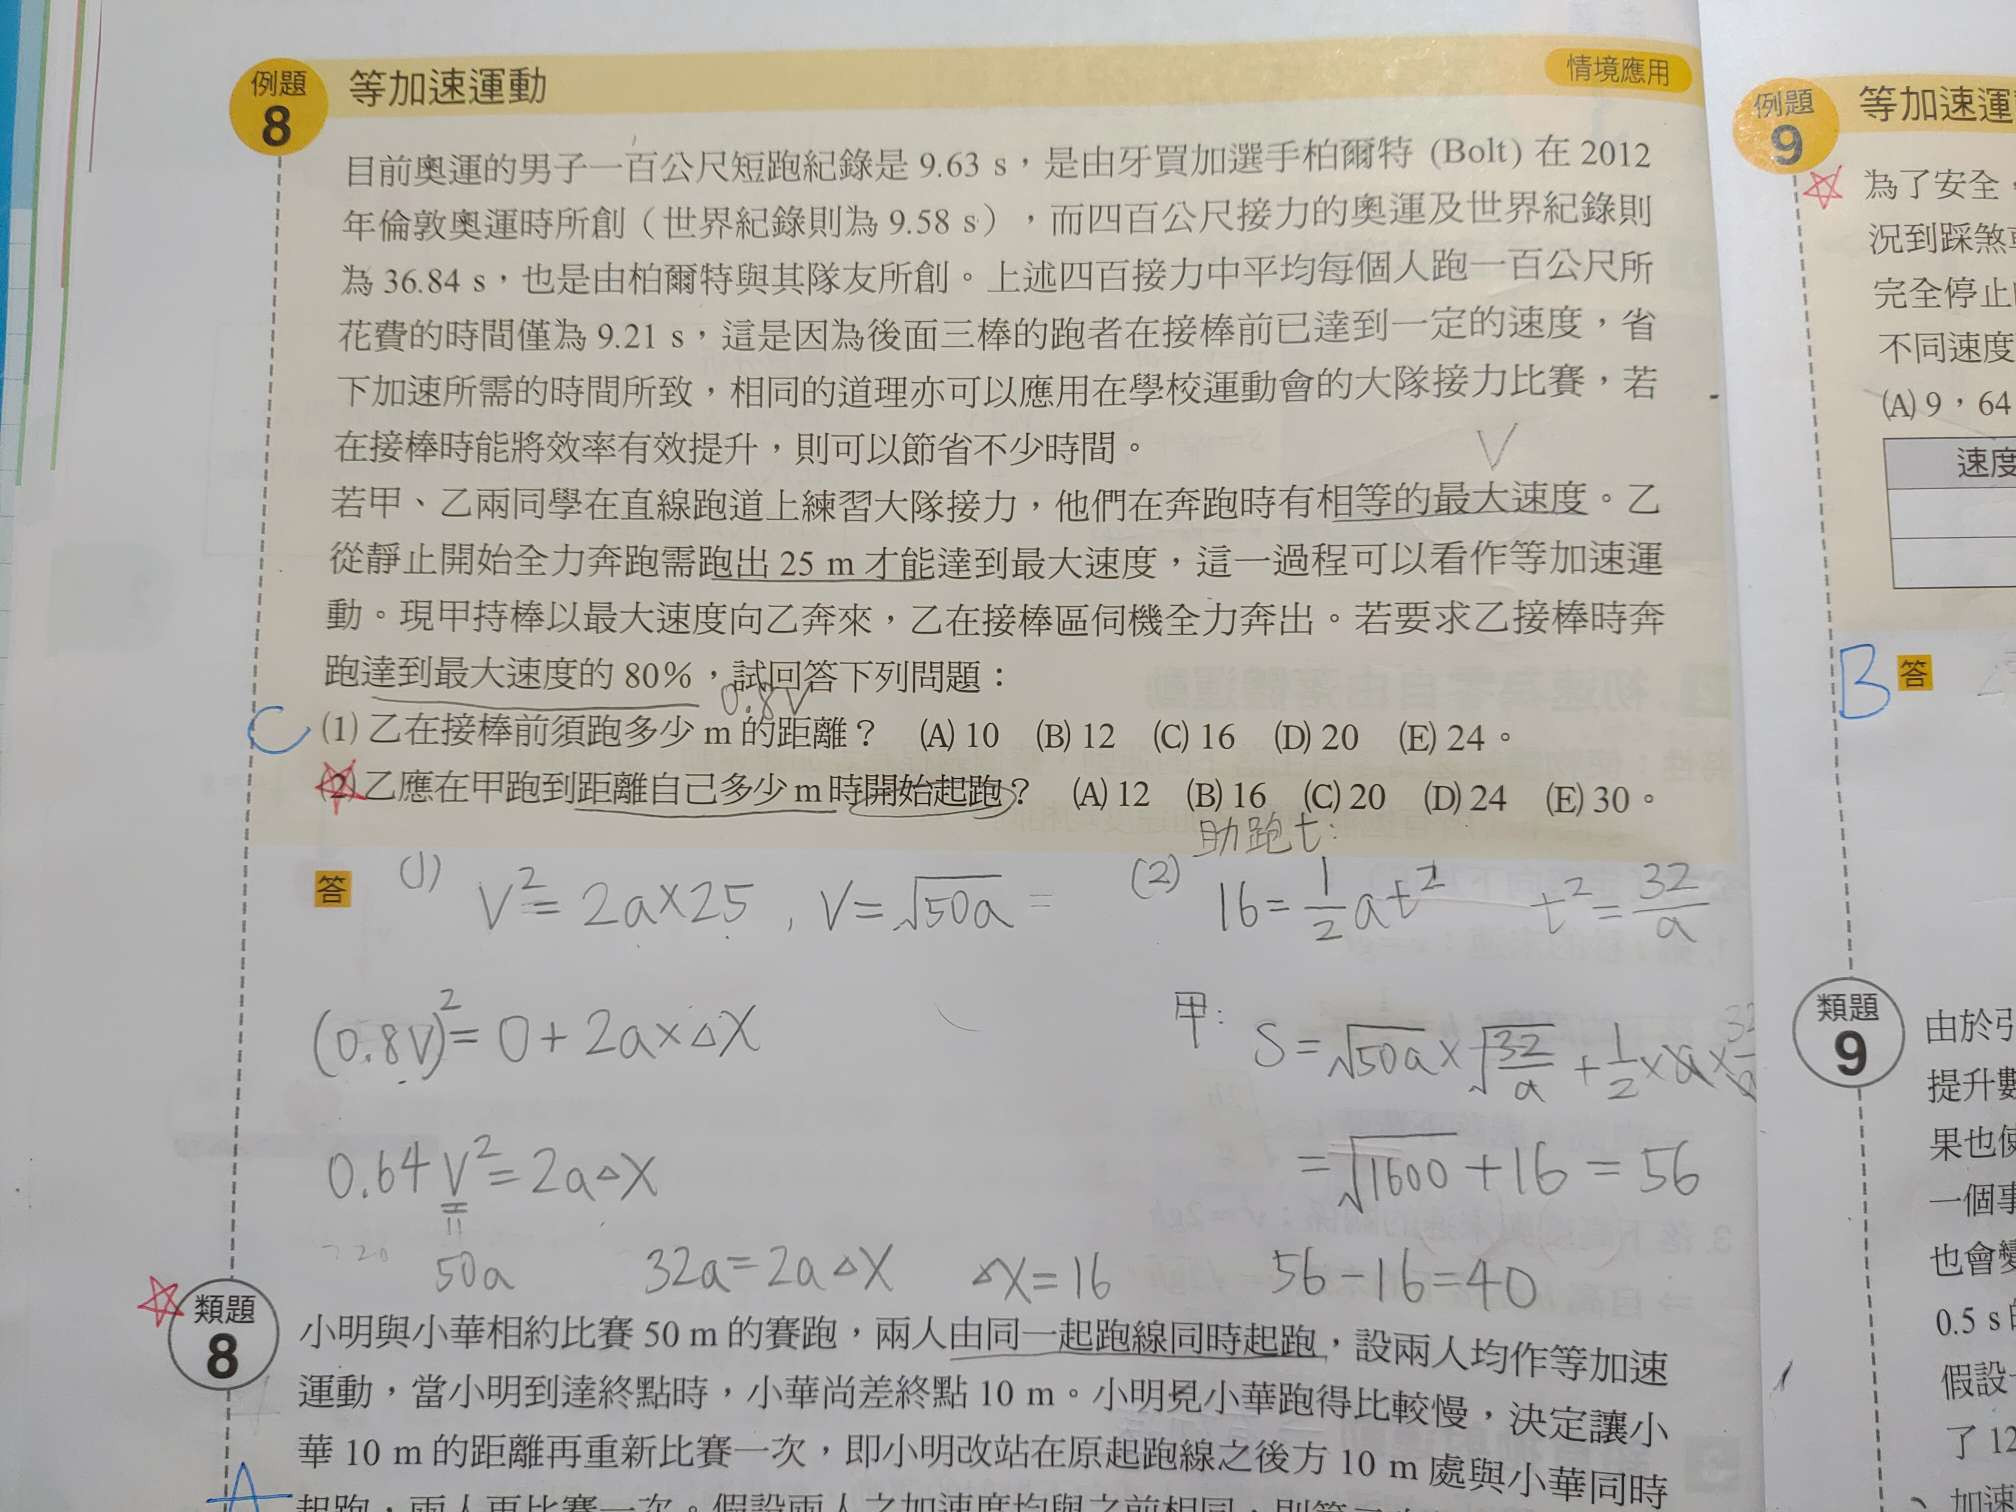 例題 8 等加速運動 情境應用
目前奧運的男子一百公尺短跑紀錄是 9.63 s，是由牙買加選手柏爾特 (Bolt) 在 2012
年倫敦奧運時所創（世界紀錄則為 9.58 s），而四百公尺接力的奧運及世界紀錄則
為 36.84 s，也是由柏爾特與其隊友所創。上述四百接力中平均每個人跑一百公尺所
花費的時間僅為 9.21 s，這是因為後面三棒的跑者在接棒前已達到一定的速度，省
下加速所需的時間所致，相同的道理亦可以應用在學校運動會的大隊接力比賽，若
在接棒時能將效率有效提升，則可以節省不少時間。
V
若甲、乙兩同學在直線跑道上練習大隊接力，他們在奔跑時有相等的最大速度。乙
從靜止開始全力奔跑需跑出 25 m 才能達到最大速度，這一過程可以看作等加速運
動。現甲持棒以最大速度向乙奔來，乙在接棒區伺機全力奔出。若要求乙接棒時奔
跑達到最大速度的 80%，試回答下列問題：
0.8V
C (1) 乙在接棒前須跑多少 m 的距離？ (A) 10 (B) 12 (C) 16 (D) 20 (E) 24。
(2) 乙應在甲跑到距離自己多少 m 時開始起跑？ (A) 12 (B) 16 (C) 20 (D) 24 (E) 30。
助跑 t：
答 (1) V²=2a×25，V=√50a =
(0.8V)²=0+2a×△X
0.64V²=2a△X
50a 32a=2a△X △X=16
(2) 16=1/2at² t²=32/a
甲： S=√50a×√32/a+1/2×a×32/a
=√1600+16=56
56-16=40
類題 8
小明與小華相約比賽 50 m 的賽跑，兩人由同一起跑線同時起跑，設兩人均作等加速
運動，當小明到達終點時，小華尚差終點 10 m。小明見小華跑得比較慢，決定讓小
華 10 m 的距離再重新比賽一次，即小明改站在原起跑線之後方 10 m 處與小華同時
A 起跑，兩人再比賽一次。假設兩人之加速度均與之前相同，則
例題 9 等加速運
為了安全，
況到踩煞
完全停止
不同速度
(A) 9，64
速度
B 答
類題 9
由於引
提升數
果也使
一個事
也會變
0.5 s
假設
了 12
加速